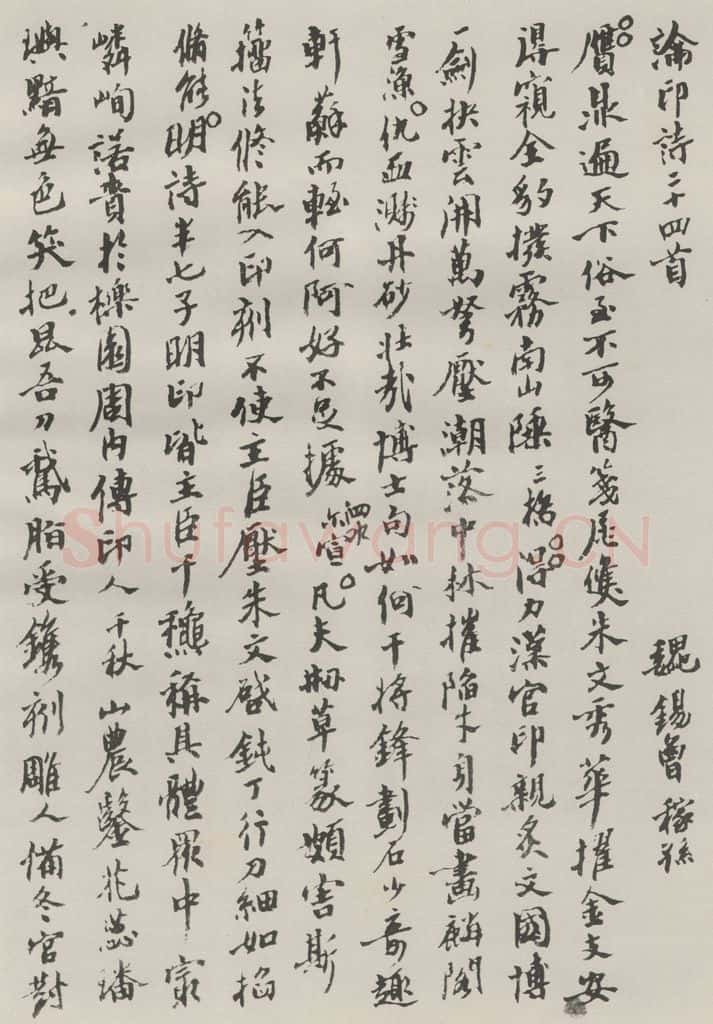 論印詩二十四首
魏錫曾稼孫
贋鼎遍天下俗至不可醫箋尾雙朱文秀華擢金支安
得窺全豹撥霧南山陲三橋得力漢官印親炙文國博
一劍抉雲開萬弩壓潮落中林摧陷才身當畫麟閣
雪漁仇血濺丹砂壯哉博士句如何干將鋒劃石少奇趣
軒蘇而輊何阿好不足據泗水寉凡夫刱草篆頗害斯
籀法修能入印刻不使主臣壓朱文啟鈍丁行刀細如掐
脩能明詩半七子明印皆主臣千龝稱具體眾中一家
嶙峋諾責於櫟園周內傳印人千秋山農鑿花蕊璠
璵黯無色笑把昆吾刀鵞脂受鐫刻雕人備冬官對
Shufawang.CN